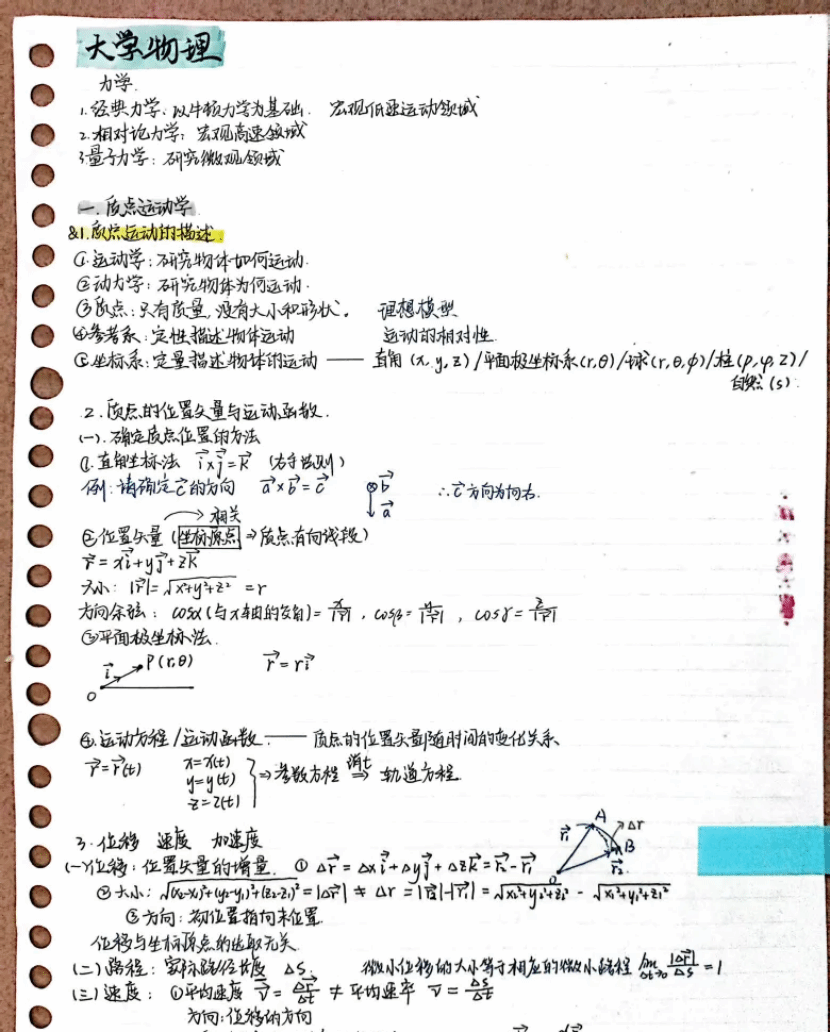 大学物理
力学.
1.经典力学:以牛顿力学为基础. 宏观低速运动领域
2.相对论力学:宏观高速领域
3.量子力学:研究微观领域
一.质点运动学
&1.质点运动的描述.
①.运动学:研究物体如何运动.
②动力学:研究物体为何运动.
③质点:只有质量,没有大小和形状。 理想模型
④参考系:定性描述物体运动 运动的相对性.
⑤坐标系:定量描述物体的运动 —— 直角(x,y,z)/平面极坐标系(r,θ)/球(r,θ,φ)/柱(ρ,φ,z)/
自然(s).
2.质点的位置矢量与运动函数.
(一).确定质点位置的方法
①.直角坐标法 i⃗×j⃗=k⃗ (右手法则)
例:请确定c⃗的方向 a⃗×b⃗=c⃗ ⊗b⃗ ∴c⃗方向为向右.
a⃗
相关
②位置矢量(坐标原点⇒质点有向线段)
r⃗=xi⃗+yj⃗+zk⃗
大小:|r⃗|=√(x²+y²+z²) =r
方向余弦:cosα(与x轴的交角)=x/|r⃗|,cosβ=y/|r⃗|,cosγ=z/|r⃗|
③平面极坐标法.
i⃗ P(r,θ) r⃗=ri⃗
O
④.运动方程/运动函数.—— 质点的位置矢量随时间的变化关系
r⃗=r⃗(t) x=x(t)
y=y(t) ⇒参数方程 消t⇒ 轨道方程
z=z(t)
3.位移 速度 加速度
A Δr r⃗₁ B r⃗₂ O
(一)位移:位置矢量的增量. ①Δr⃗=Δxi⃗+Δyj⃗+Δzk⃗=r⃗₂-r⃗₁
②大小:√((x₂-x₁)²+(y₂-y₁)²+(z₂-z₁)²)=|Δr⃗| ≠ Δr=|r⃗₂|-|r⃗₁|=√(x₂²+y₂²+z₂²) - √(x₁²+y₁²+z₁²)
③方向:初位置指向末位置
位移与坐标原点的选取无关
(二)路程:实际路径长度 ΔS. 微小位移的大小等于相应的微小路程 lim Δt→0 |Δr⃗|/ΔS=1
(三)速度:①平均速度 v⃗=Δr⃗/Δt ≠平均速率 v=ΔS/Δt
方向:位移的方向